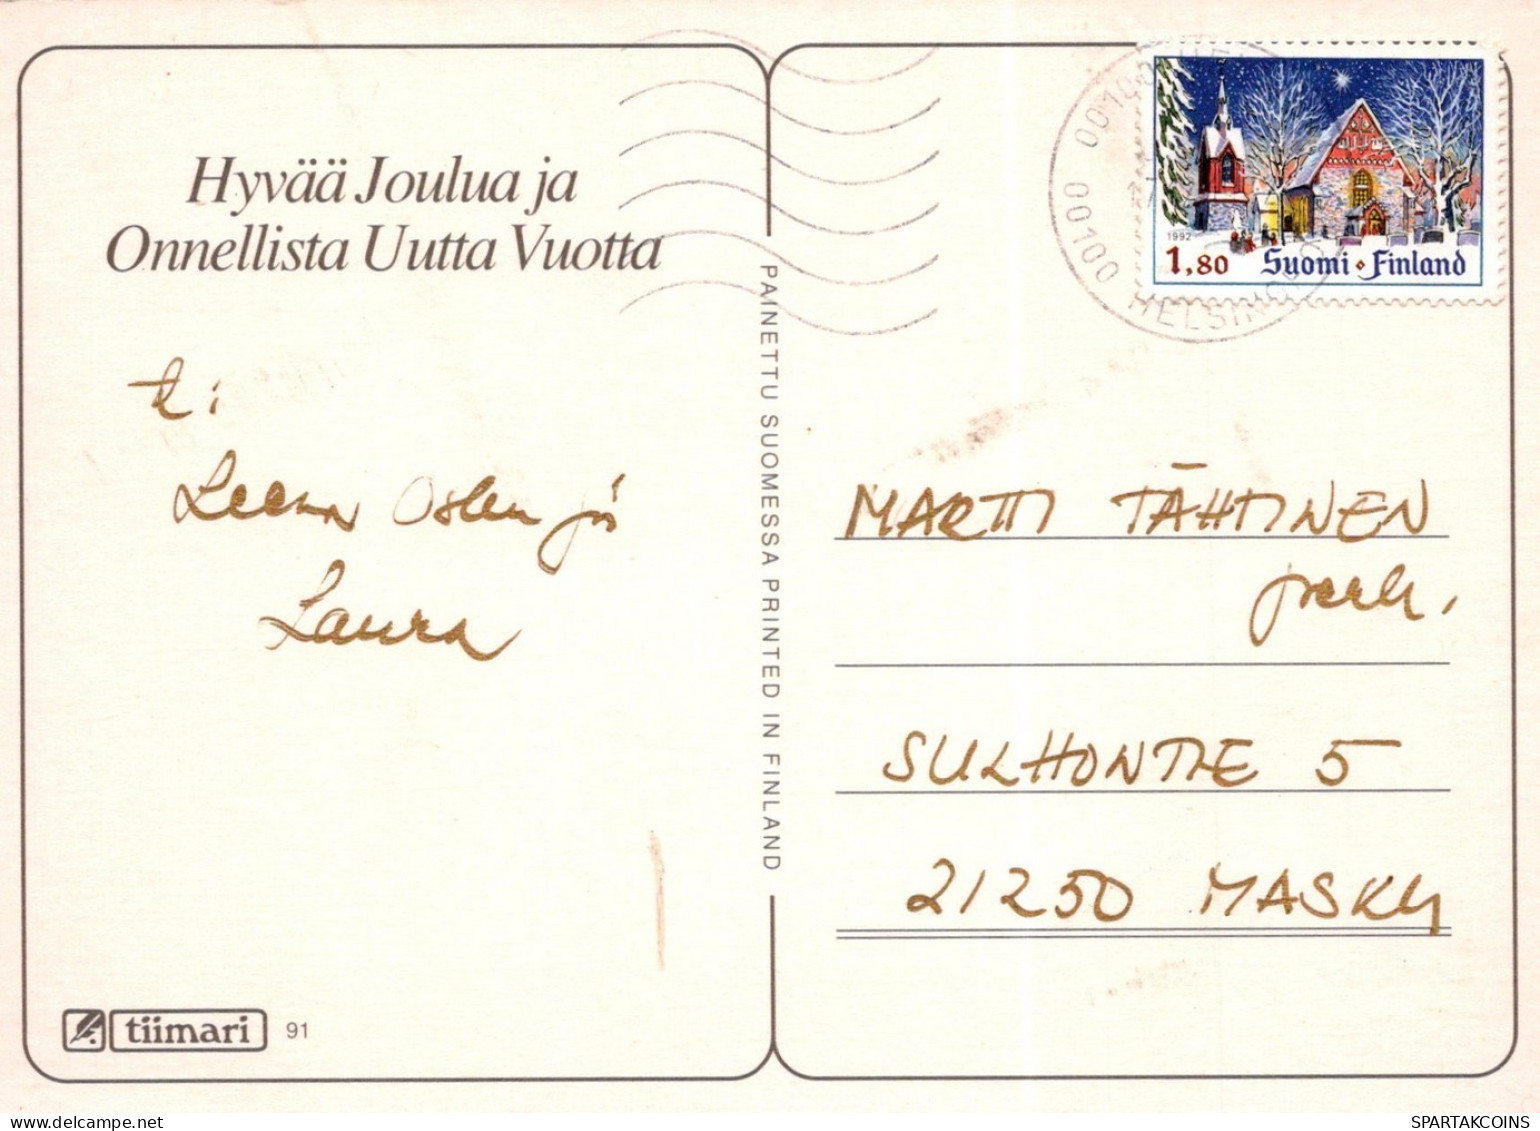 Hyvää Joulua ja
Onnellista Uutta Vuotta
t:
Leena Osku ja
Laura
tiimari 91
PAINETTU SUOMESSA PRINTED IN FINLAND
00100 HELSINGFORS
1992
1,80 Suomi • Finland
MARTTI TÄHTINEN
perh.
SULHONTIE 5
21250 MASKU
SPARTAKCOINS